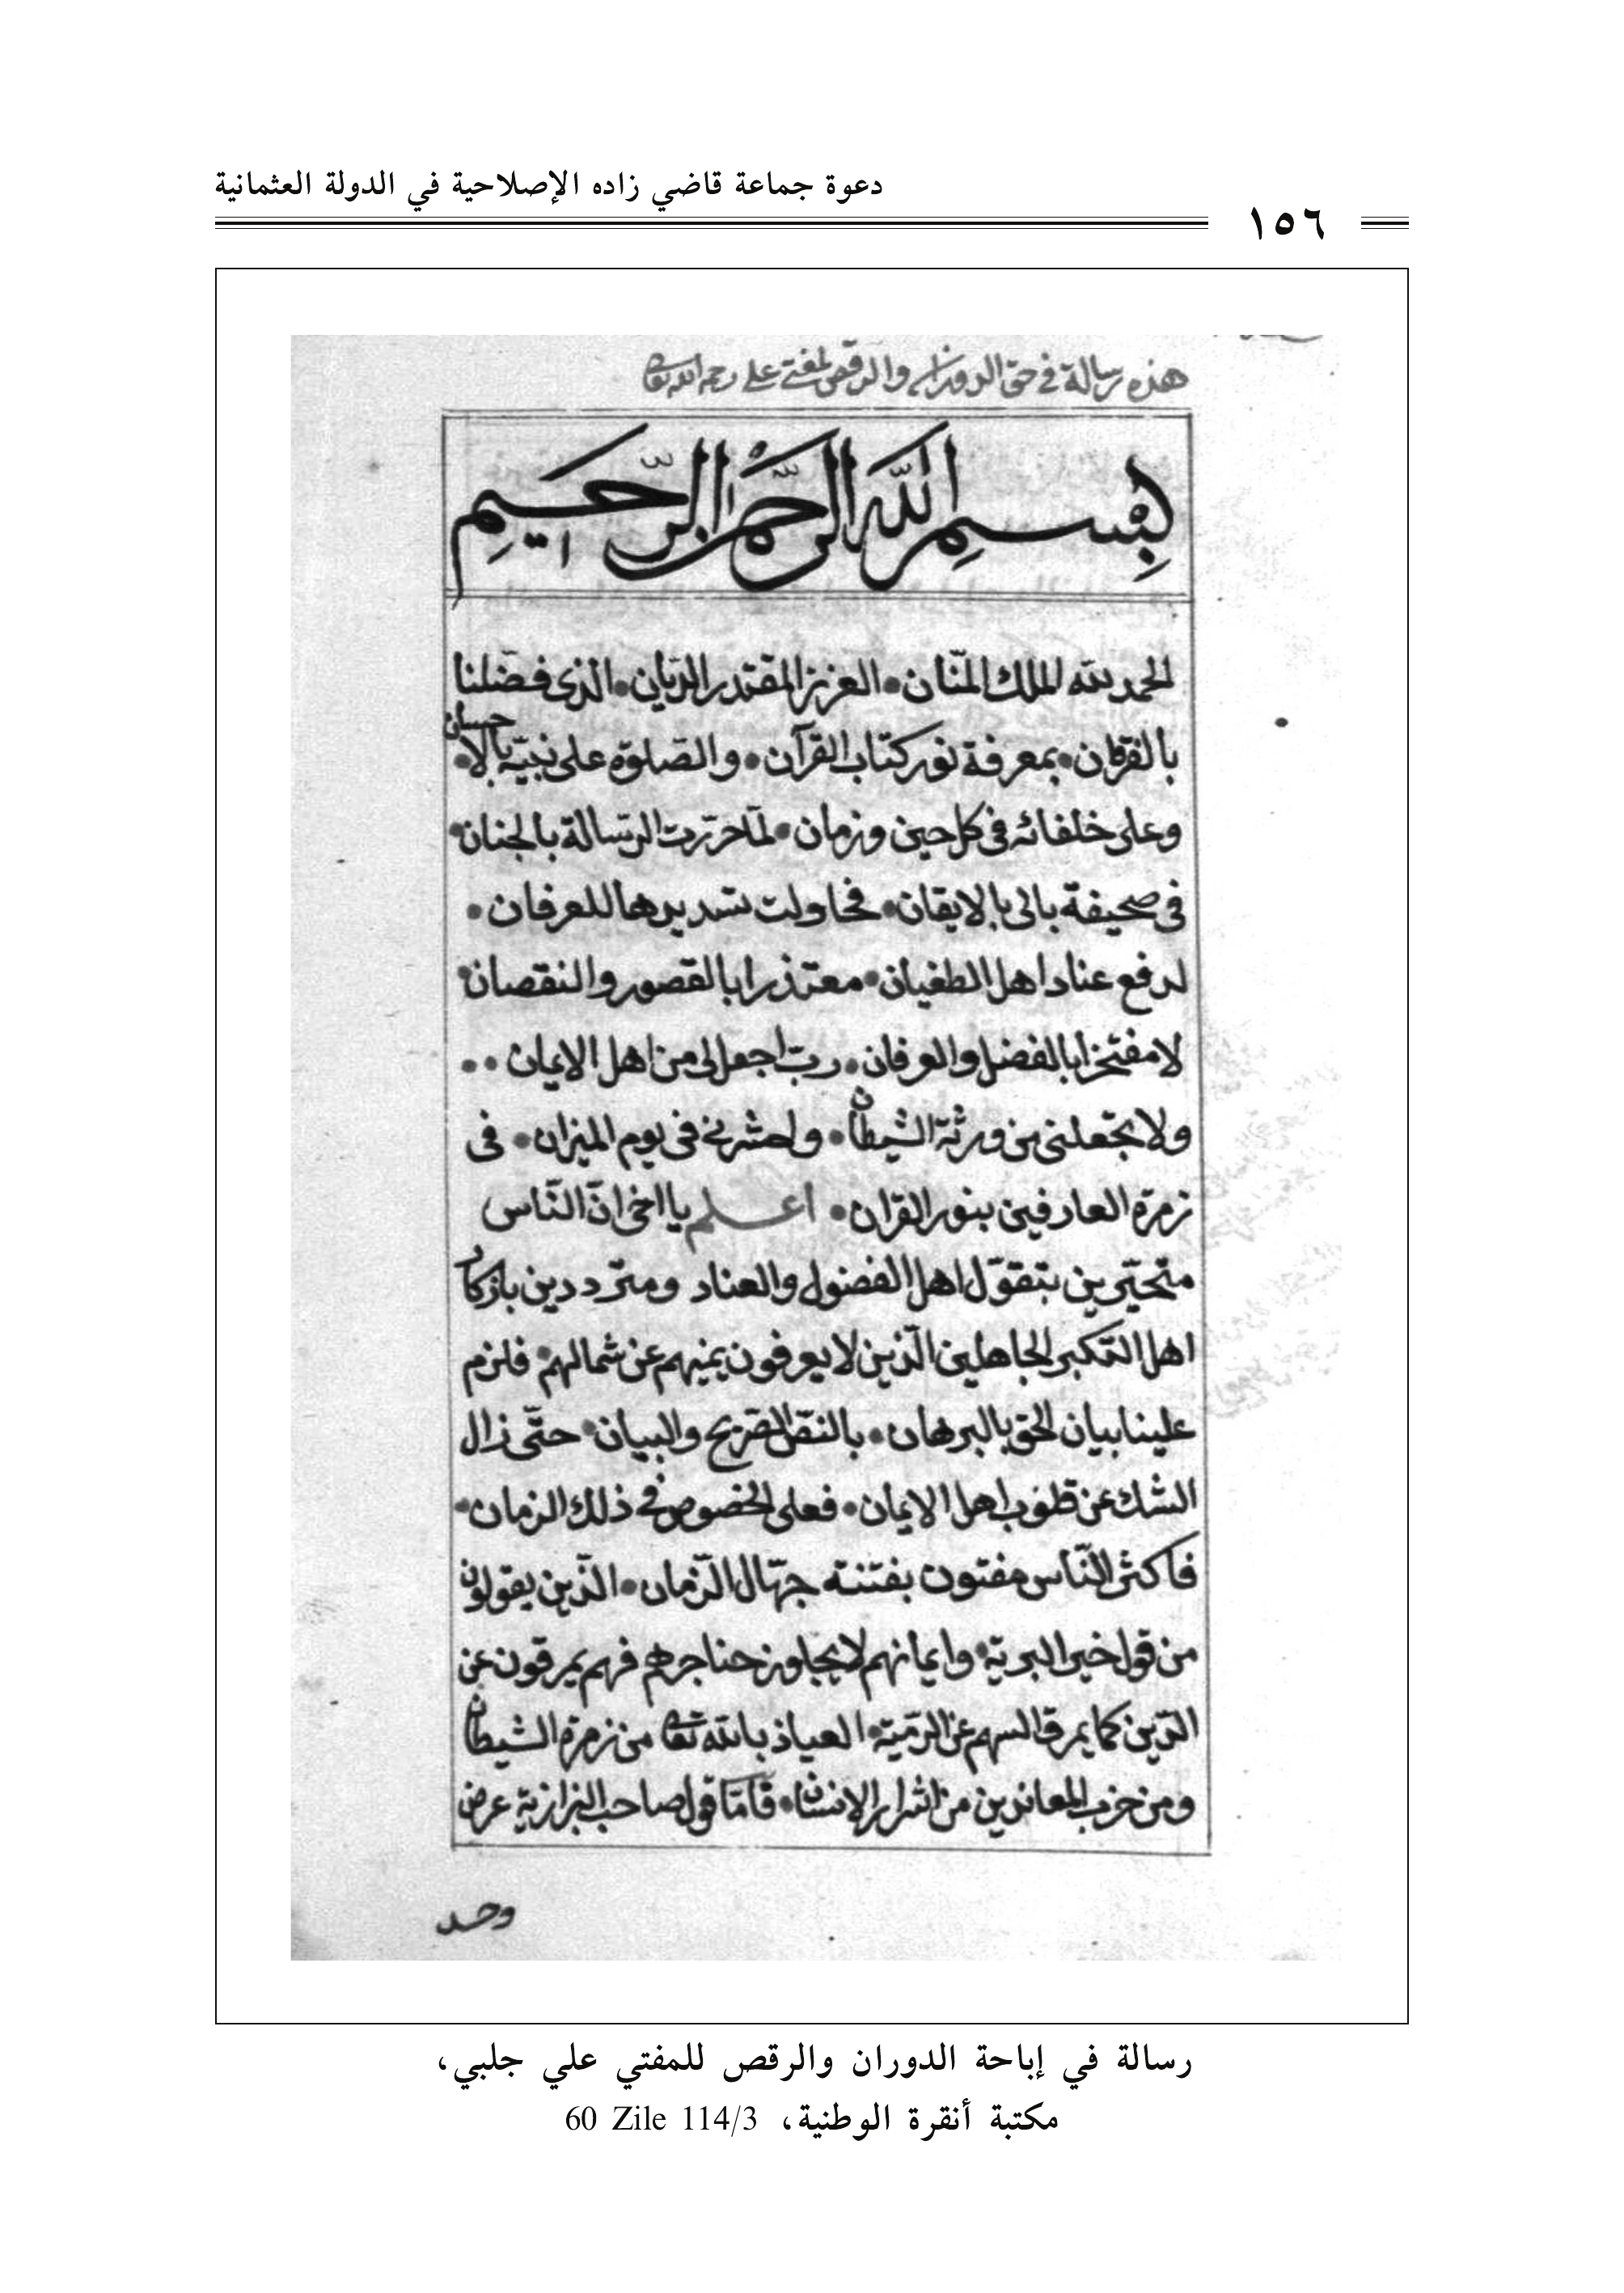 دعوة جماعة قاضي زاده الإصلاحية في الدولة العثمانية
١٥٦
هذه رسالة في حق الدوران والرقص لمفتى على رحمه الله تعالى
بِسْمِ اللّٰه الرَّحْمٰن الرَّحِيمِ
الحمد لله الملك المنّان • العزيز المقتدر الديّان • الذى فضّلنا
بالفرقان • بمعرفة نور كتاب القرآن • والصّلوة على نبيّه بالاحسان •
وعلى خلفائه فى كل حين وزمان • لمّا حرّرت الرّسالة بالجنان •
فى صحيفة بالى بالايقان • فحاولت تسديدها للعرفان •
لدفع عناد اهل الطغيان • معتذرا بالقصور والنقصان •
لا مفتخرا بالفضل والعرفان • ربّ اجعلى من اهل الايمان • •
ولا تجعلنى من ورثة الشيطان • واحشرنى فى يوم الميزان • فى
زمرة العارفين بنور القران • اعلم يا اخى انّ النّاس
متحيّرين بتقوّل اهل الفضول والعناد ومتردّدين
اهل التكبر الجاهلين الّذين لا يعرفون يمينهم عن شمالهم • فلزم
علينا بيان الحق بالبرهان • بالنصّ الصّريح والبيان • حتّى زال
الشك عن قلوب اهل الايمان • فعلى الخصوص فى ذلك الزمان •
فاكثر النّاس مفتون بفتنة جهّال الزّمان • الذّين يقولون
من قول خير البريّة • وايمانهم لا يجاوز حناجرهم فهم يمرقون عن
الدّين كما يمرق السهم عن الرّميّة • العياذ بالله تعالى من زمرة الشيطان
ومن حزب المعاندين من اشرار الانسان • فامّا قول صاحب البزازية عرض
وحد
رسالة في إباحة الدوران والرقص للمفتي علي جلبي،
مكتبة أنقرة الوطنية، 60 Zile 114/3